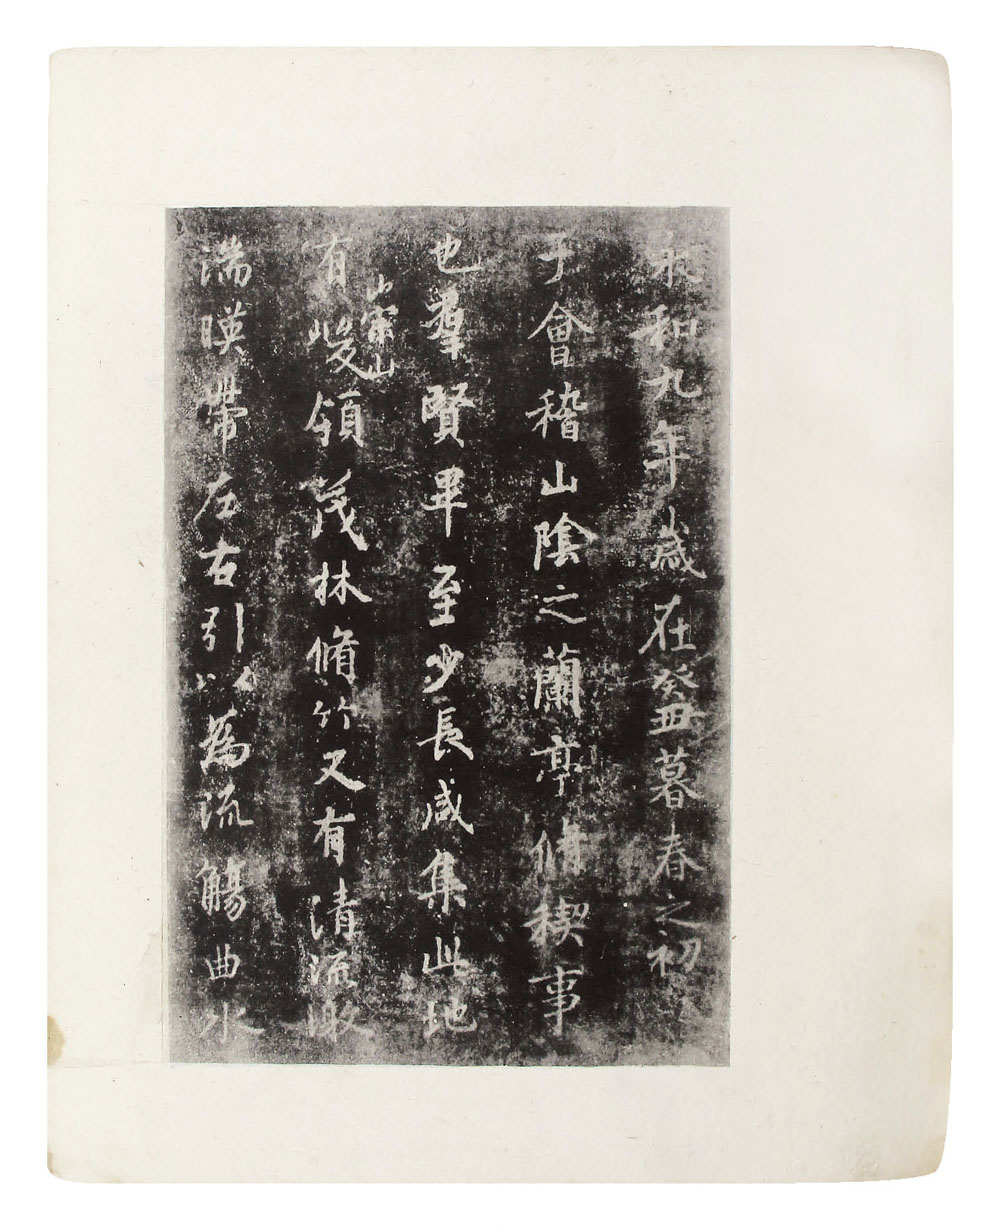 永和九年歲在癸丑暮春之初
于會稽山陰之蘭亭脩稧事
也羣賢畢至少長咸集此地
崇山
有峻領茂林脩竹又有清流激
湍暎帶左右引以為流觴曲水